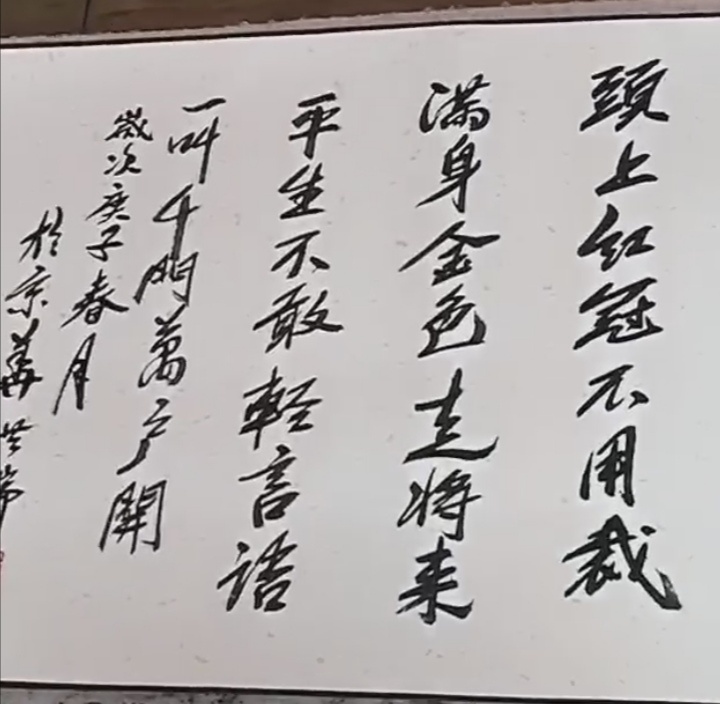 頭上红冠不用裁
满身金色走将来
平生不敢輕言语
一叫千門萬户開
歲次庚子春月
於京